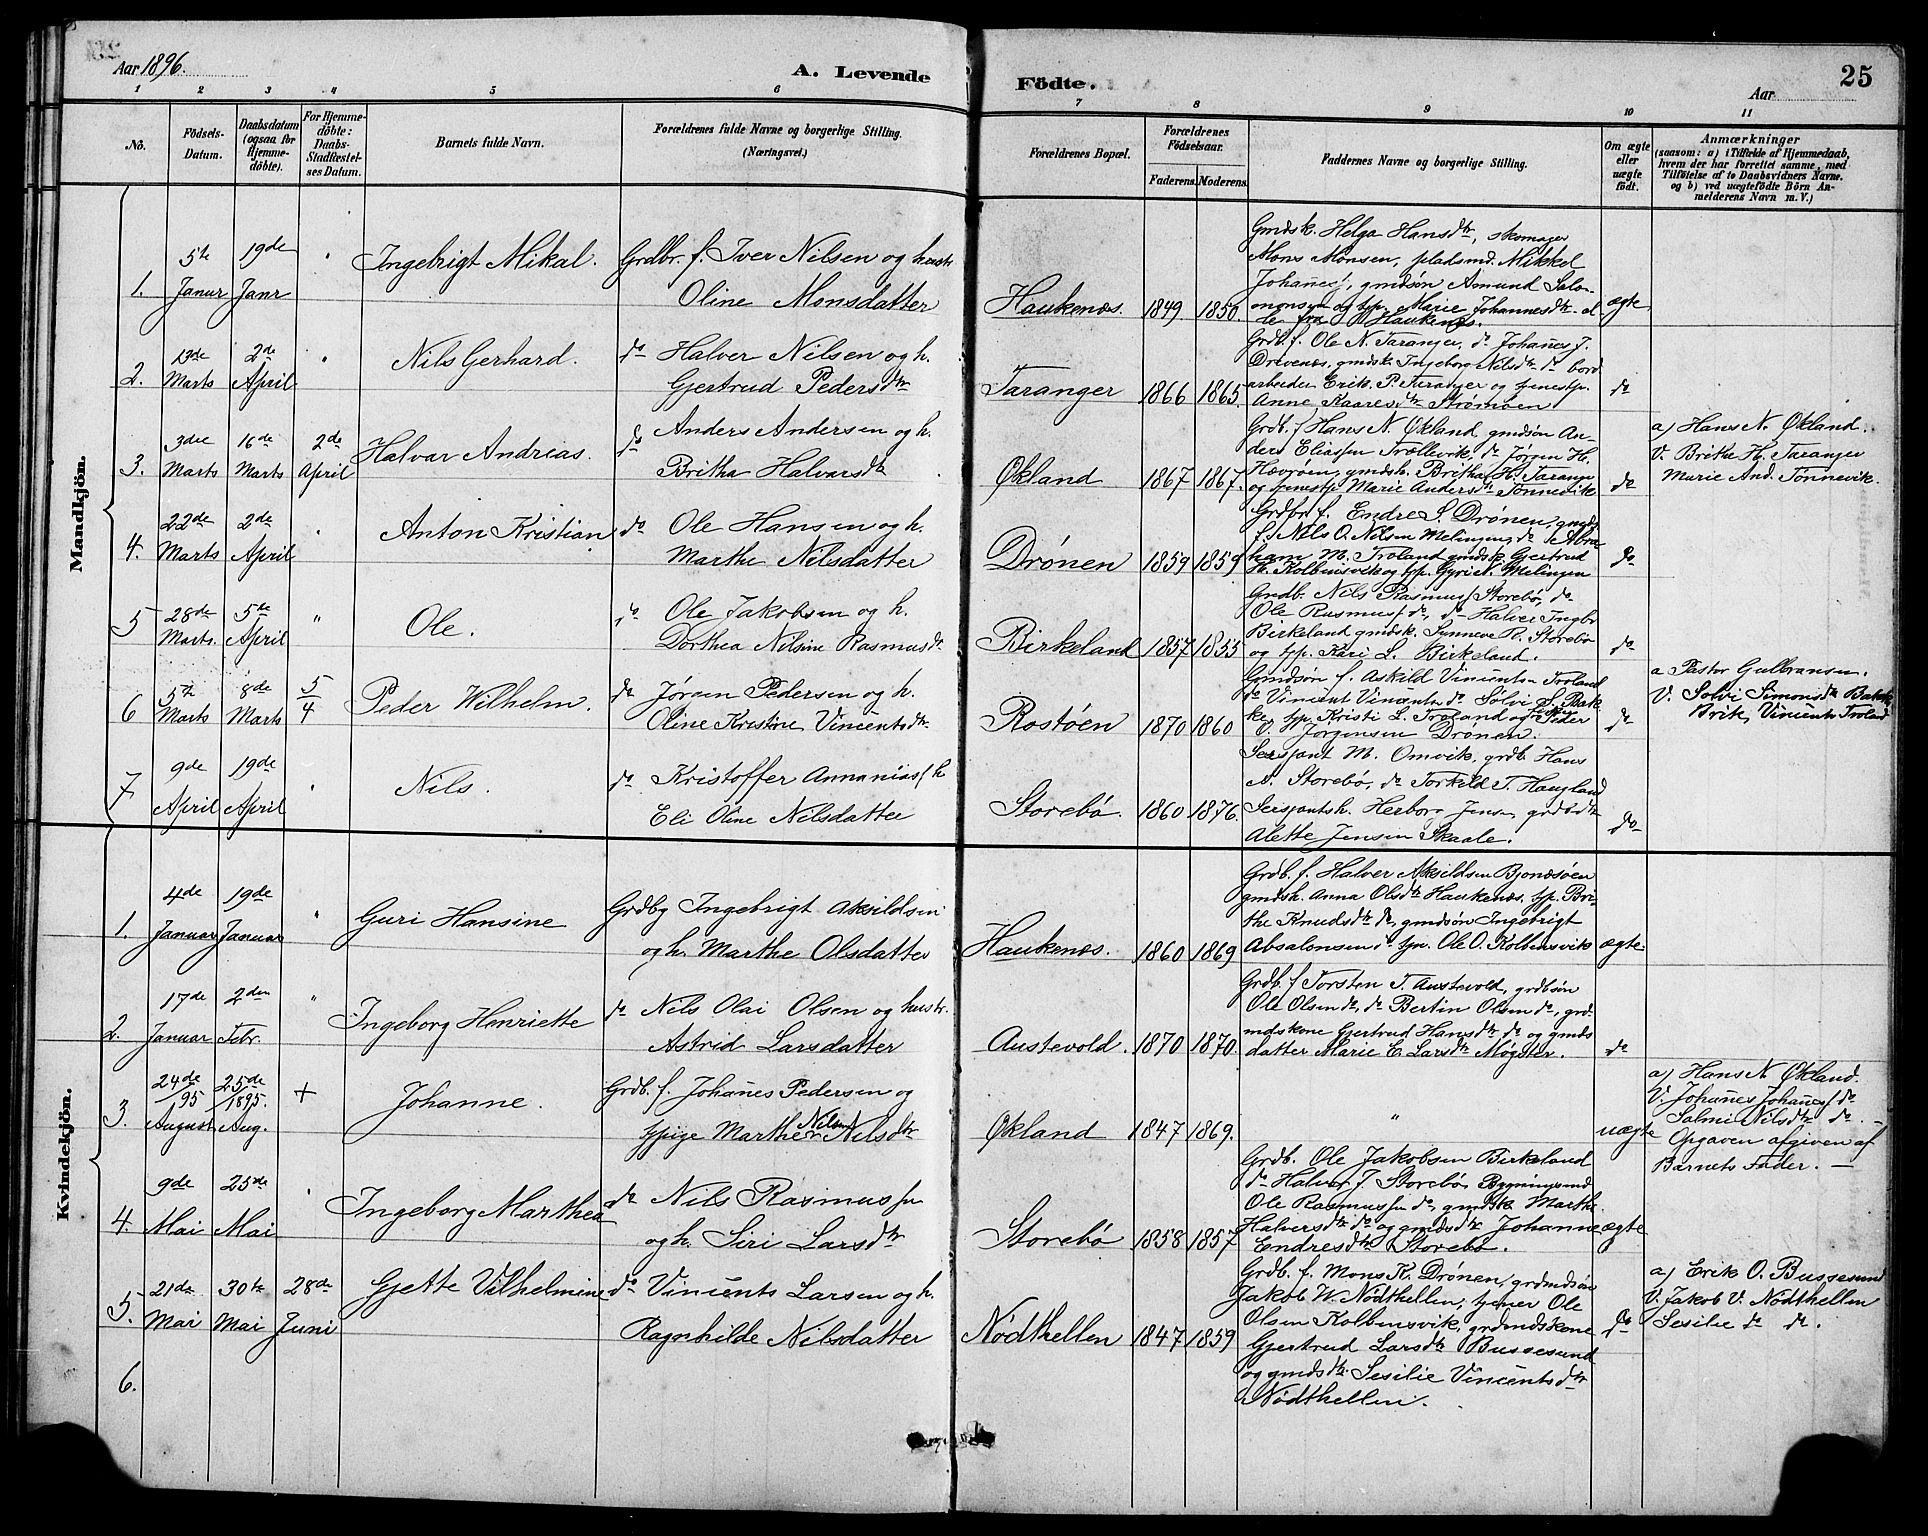 Aar 1896.
A. Levende
Födte.
25
Aar
1 2 3 4 5 6 7 8 9 10 11
No.
Födsels-
Datum.
Daabsdatum
(ogsaa for
Hjemme-
döbte).
For Hjemme-
döbte:
Daabs-
Stadfæstel-
ses Datum.
Barnets fulde Navn.
Forældrenes fulde Navne og borgerlige Stilling.
(Næringsvei.)
Forældrenes Bopæl.
Forældrenes
Födselsaar.
Faderens. Moderens.
Faddernes Navne og borgerlige Stilling.
Om ægte
eller
uægte
födt.
Anmærkninger
(saasom: a) i Tilfælde af Hjemmedaab,
hvem der har forrettet samme, med
Tilföielse af to Daabsvidners Navne.
og b) ved uægtefödte Börn An-
melderens Navn m. V.)
Mandkjön.
1.
5te
Januar
19de
Janr
"
Ingebrigt Mikal.
Grdbr. f. Iver Nilsen og hustr
Oline Monsdatter
Haukenæs.
1849
1850.
Gmdsk. Helga Hansdtr, skomager
Mons Monsen, pladsmd. Mikkel
Johanes/, gmdsön Amund Salo-
monsen og tjp. Marie Johannesdtr. al-
le fra Haukenæs.
ægte
2.
Marts
2de
April
"
Nils Gerhard.
do Halver Nilsen og h.
Gjertrud Pedersdtr
Taranger
1866
1865.
Grdb. f. Ole N. Taranger, do Johanes J.
Drevenæs, gmdsk. Ingeborg Nilsdtr do bord
arbeider Erik P. Taranger og tjenestp.
Anne Kaaresdtr Strömöen
do
3.
3die
Marts
16de
Marts
2de
April
Halvar Andreas.
do Anders Andersen og h.
Britha Halvarsdtr
Økland
1867
1867.
Grdb. f Hans N Økland, gmdsön An-
ders Eliassen Trællevik, do Jörgen H.
Hevröen, gmdsk. Britha H. Tarange
og tjenestp Marie Andersdtr Tönnevik
do
a) Hans N. Økland.
V. Brithe H. Taranger
Marie And. Tönnevik.
4.
22de
Marts
2de
April
"
Anton Kristian
do Ole Hansen og h.
Marthe Nilsdatter
Drönen
1859
1859
Grdbr f. Endre S. Drönen, gmds
f. Nils O. Nilsen Melingen, do Abra
ham M. Troland gmdsk Gjertrud
H. Kolbensvik og tjp. Gyri N. Melingen
do
5
28de
Marts.
5te
April
"
Ole.
do Ole Jakobsen og h.
Dorthea Nilsine Rasmusdtr
Birkeland
1857
1855
Grdb. Nils Rasmus/ Storebö, do
Ole Rasmus/ do, do Halver Ingbr
Birkeland gmdsk. Synneve R. Storebö
og tjp. Kari L. Birkeland.
do
6
5te
Marts
8de
Marts
5/4
Peder Wilhelm.
do Jörgen Pedersen og h.
Oline Kristine Vincentsdtr
Rostöen
1870
1860
Gmdsön f. Askild Vincents Troland
do Vincent Vincents do Sölvi S. Bak
ke, tjp. Kristi L. Troland og Peder
Jörgensen Drönen.
do
a Pastor Gulbransen.
V. Sölvi Simonsdtr Bakke
Brite Vincents Troland
7
9de
April
19de
April
"
Nils.
do Kristoffer Annanias/ h
Eli Oline Nilsdatter
Storebö.
1860
1876.
Sersjant M. Omvik, grdb. Hans
N. Storebö, do Torkild T. Haugland
Sersjantsk. Herborg Jensen, grdbdtr
Alette Jensen Skaale.
do
Kvindekjön.
1.
4de
Januar
19de
Januar
"
Guri Hansine
Grdbg Ingebrigt Aksildsen
og h. Marthe Olsdatter
Haukenæs.
1860
1869
Grdb. f. Halver Aksildsen Bjondöen
gmdsk. Anna Olsdtr Haukenæs. tjp. Bri-
the Knudsdtr do, gmdsön Ingebrigt
Absalonsen do tjn. Ole O. Kolbensvik
ægte
2.
17de
Januar
2den
Febr.
"
Ingeborg Henriette
do Nils Olai Olsen og hustr.
Astrid Larsdatter
Austevold.
1870
1870.
Grdb. f Torsten T. Austevold, grdbsön
Ole Olsen do, do Bertin Olsen do, grd-
mdskone Gjertrud Hansdtr do og gmds
datter Marie E. Larsdtr Møgster.
do
3.
24de/95
August
25de/1895.
Aug.
+
Johanne.
Grdb. f. Johanes Pedersen og
tjpige Marthe Nilsen Nilsdtr
Økland
1847
1869.
"
uægte
a) Hans N. Økland.
V. Johanes Johanes/ do
Salmi Nilsdtr do. -
Opgaven afgiven af
Barnets Fader. -
4.
9de
Mai
25de
Mai
Ingeborg Marthea
do Nils Rasmussen
og h. Siri Larsdtr
Storebö
1858
1857
Grdb. Ole Jakobsen Birkeland
do Halver J. Storebö, Bygningsmd
Ole Rasmussen do, gmdsk Marthe
Halversdtr do og gmdsdtr Johanne
Endresdtr Storebö.
ægte
5.
21de
Mai
30te
Mai
28de
Juni
Gjette Vilhelmine
do Vincents Larsen og h.
Ragnhilde Nilsdatter
Nödthellen
1847
1859
Grdb. f. Mons K. Drönen, grdmdsön
Jakob W. Nödthellen, tjener Ole
Olsen Kolbensvik, grdmdskone
Gjertrud Larsdtr Bussesund
og gmdsdtr. Sesilie Vincentsdtr
Nödthellen.
do
a) Erik O. Bussesund
V. Jakob V. Nödthellen
Sesilie do do.
6.